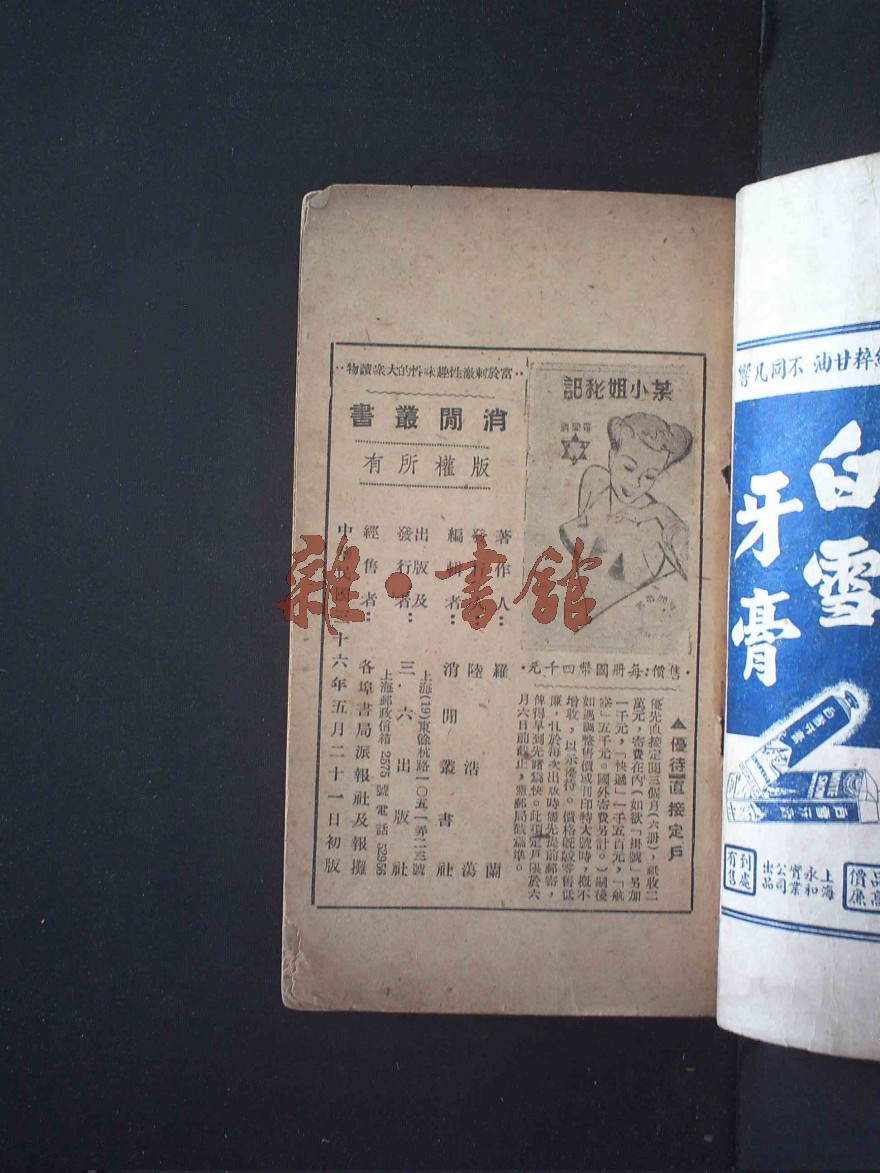 ··富於刺激性趣味性的大衆讀物··
消閒叢書
版權所有
某小姐秘記
·售價：每册國幣四千元·
▲優待直接定戶
優先直接定閱三個月(六册)，祗收二
萬元，寄費在內(如欲「掛號」另加
一千元，「快遞」一千五百元，「航
寄」五千元。國外寄費另計。)嗣後
如遇調整售價或刊印特大號時，概不
增收，以示優待。價格旣較零售低
廉，且於每次出版時儘先提前郵寄，
俾得早到先睹爲快。此項定戶限於六
月六日前截止，憑郵局戳爲準。
著作人：羅蘭
發行人：陸浩蕩
編輯者：消閒叢書社
出版及發行者：三·六出版社
上海(19)東餘杭路一〇五一弄二三號
上海郵政信箱2575號電話52956
經售者：各埠書局派報社及報攤
中華民國三十六年五月二十一日初版
雜·書館
粹甘油 不同凡響
白雪
牙膏
到處有售
上海永和實業公司出品